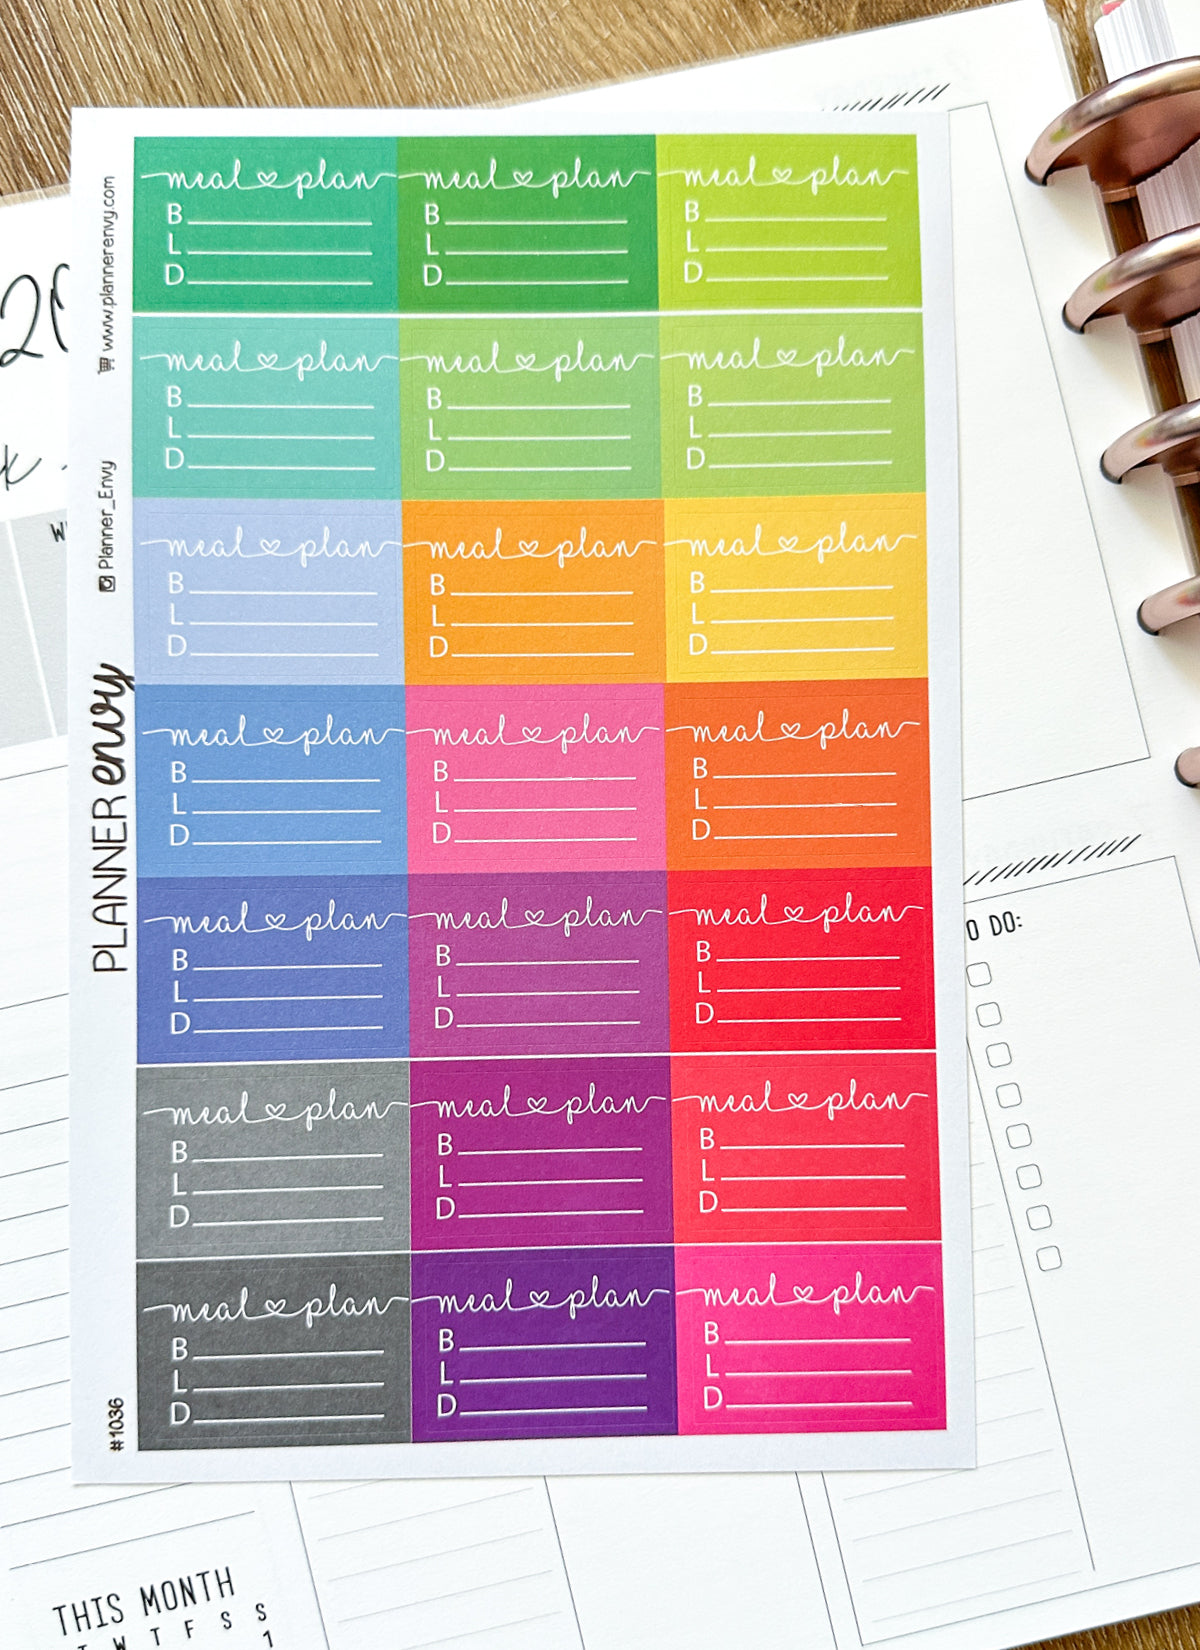 www.plannerenvy.com
Planner_Envy
PLANNER envy
#1036
meal plan meal plan meal plan
B B B
L L L
D D D
meal plan meal plan meal plan
B B B
L L L
D D D
meal plan meal plan meal plan
B B B
L L L
D D D
meal plan meal plan meal plan
B B B
L L L
D D D
meal plan meal plan meal plan
B B B
L L L
D D D
meal plan meal plan meal plan
B B B
L L L
D D D
meal plan meal plan meal plan
B B B
L L L
D D D
O DO:
THIS MONTH
W T F S S
1